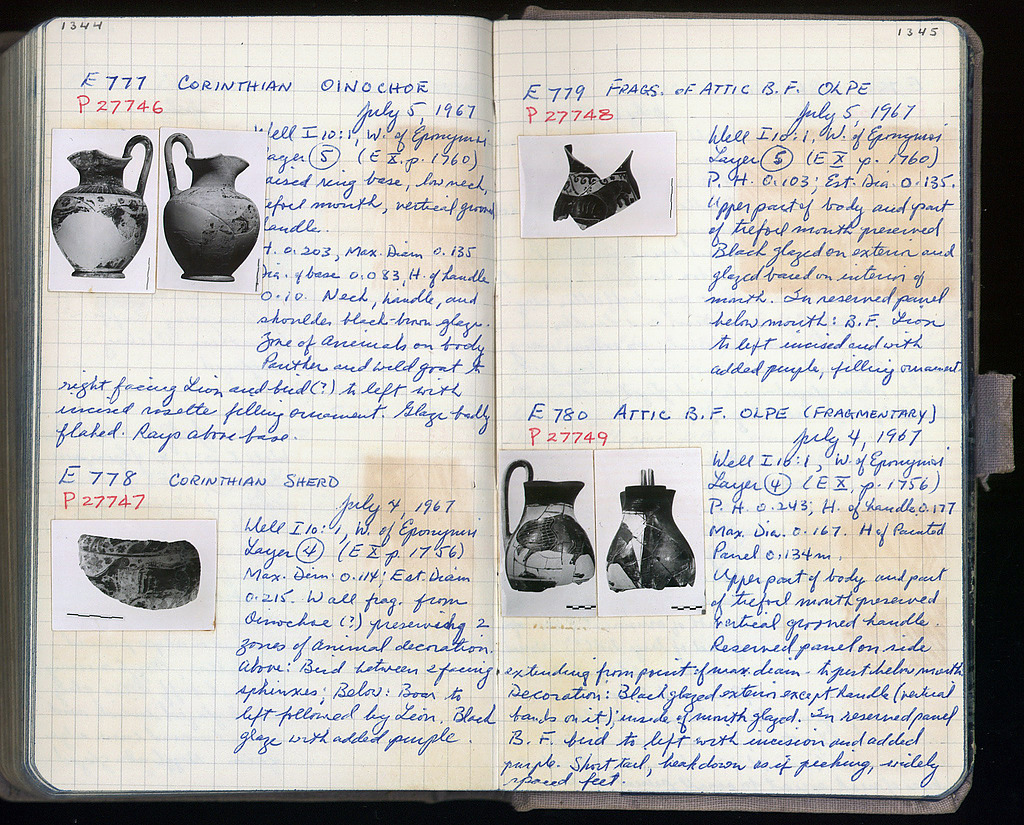 1344
E 777 CORINTHIAN OINOCHOE
P 27746
July 5, 1967
Well I 10:1, W. of Eponymoi
Layer ⑤ (E X, p. 1760)
raised ring base, low neck,
trefoil mouth, vertical grooved
handle.
H. 0.203, Max. Diam 0.135
Dia. of base 0.083, H. of handle
0.10. Neck, handle, and
shoulder black-brown glaze.
Zone of animals on body
Panther and wild goat to
right facing Lion and bird (?) to left with
incised rosette filling ornament. Glaze badly
flaked. Rays above base.
E 778 CORINTHIAN SHERD
P 27747
July 4, 1967
Well I 10:1, W. of Eponymoi
Layer ④ (E X p. 1756)
Max. Dim. 0.114; Est. Diam
0.215. Wall frag. from
Oinochoe (?) preserving 2
zones of animal decoration.
Above: Bird between 2 facing
sphinxes; Below: Boar to
left followed by Lion. Black
glaze with added purple.
1345
E 779 FRAGS. OF ATTIC B.F. OLPE
P 27748
July 5, 1967
Well I 10:1, W. of Eponymoi
Layer ⑤ (E X p. 1760)
P. H. 0.103; Est. Dia. 0.135.
Upper part of body and part
of trefoil mouth preserved
Black glazed on exterior and
glazed band on interior of
mouth. In reserved panel
below mouth: B.F. Lion
to left incised and with
added purple, filling ornament
E 780 ATTIC B.F. OLPE (FRAGMENTARY)
P 27749
July 4, 1967
Well I 10:1, W. of Eponymoi
Layer ④ (E X, p. 1756)
P. H. 0.243; H. of handle 0.177
Max. Dia. 0.167. H of Painted
Panel 0.134m.
Upper part of body and part
of trefoil mouth preserved
vertical grooved handle.
Reserved panel on side
extending from point of max. diam. to just below mouth
Decoration: Black glazed exterior except handle (vertical
bands on it); inside of mouth glazed. In reserved panel
B.F. bird to left with incision and added
purple. Short tail, beak down as if pecking, widely
spaced feet.